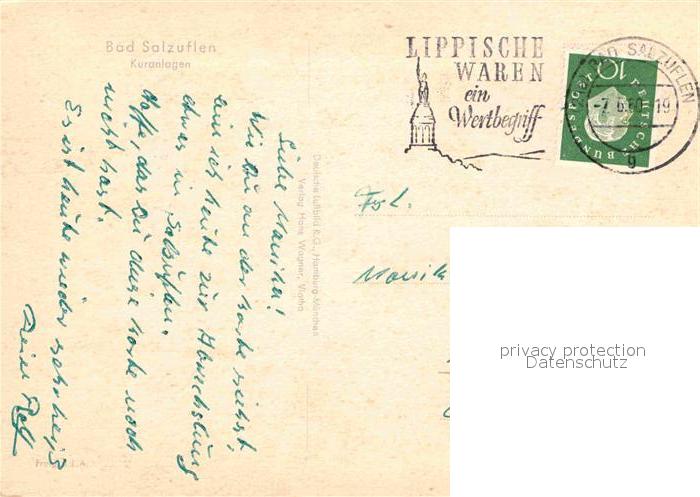 Bad Salzuflen
Kuranlagen
LIPPISCHE
WAREN
ein
Wertbegriff
BAD SALZUFLEN
-7.6.60.-19
g
10
DEUTSCHE BUNDESPOST
Liebe Marika!
Wie Du an der Karte siehst,
bin ich heute zur Abwechslung
etwas in Salzuflen.
Hoffe, das Du diese Karte noch
nicht hast.
Es ist heute wieder sehr heiß
Dein Rolf
Deutsche Luftbild K.G., Hamburg-München
Verlag Hans Wagner, Vlotho
Frl.
Marik
privacy protection
Datenschutz